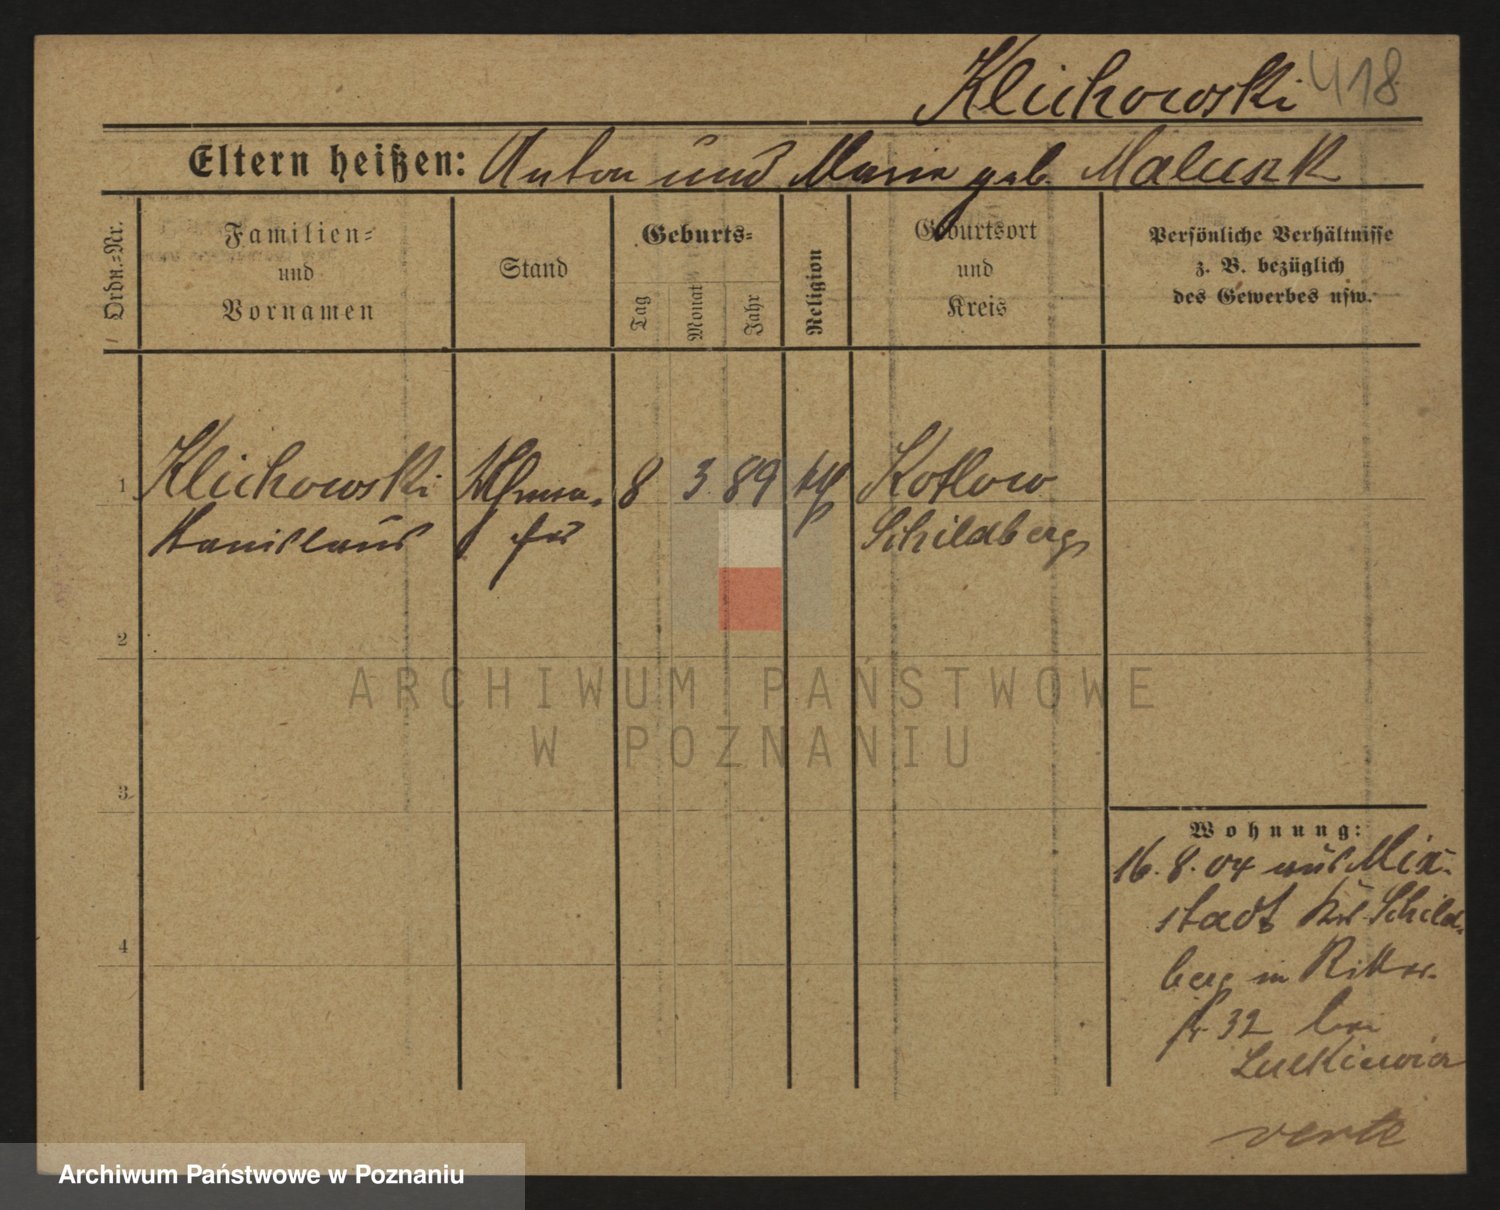 Klichowski 418
Eltern heißen: Anton und Maria geb. Maluszk
Ordn.-Nr.
Familien-
und
Vornamen
Stand
Geburts-
Tag
Monat
Jahr
Religion
Geburtsort
und
Kreis
Persönliche Verhältnisse
z. B. bezüglich
des Gewerbes usw.
1 Klichowski 8 3. 89 kth Kotlow
Stanislaus Schildberg
2
3
4
Wohnung:
16. 8. 04 aus Mix-
stadt Krs. Schild-
berg in Ritter-
str 32 bei
verte
ARCHIWUM PAŃSTWOWE
W POZNANIU
Archiwum Państwowe w Poznaniu